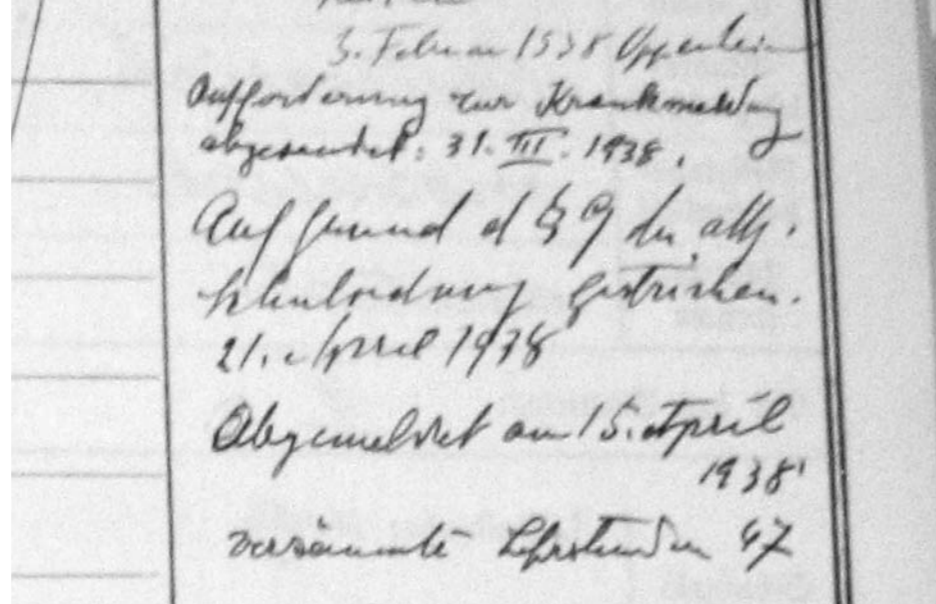 3. Februar 1938 Oppenheim
Aufforderung zur Krankmeldung
abgesendet: 31. III. 1938.
Auf Grund d § 9 der allg.
Schulordnung gestrichen.
21. April 1938
Abgemeldet am 15. April
1938
versäumte Lehrstunden 47